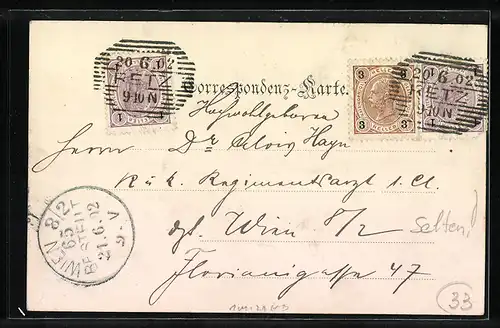 20 6. 02
RETZ
9-10 N
1 1
Correspondenz-Karte.
3 3
HELLER
3 3
20 6. 02
RETZ
9-10 N
1
Hochwohlgeboren
Herrn Dr Alois Hayn
K. u. k. Regimentsarzt I. Cl.
Wien 8/2
Selten!
Florianigasse 47
WIEN 8/2
65
BESTELLT
21. 6. 02
9. V
33